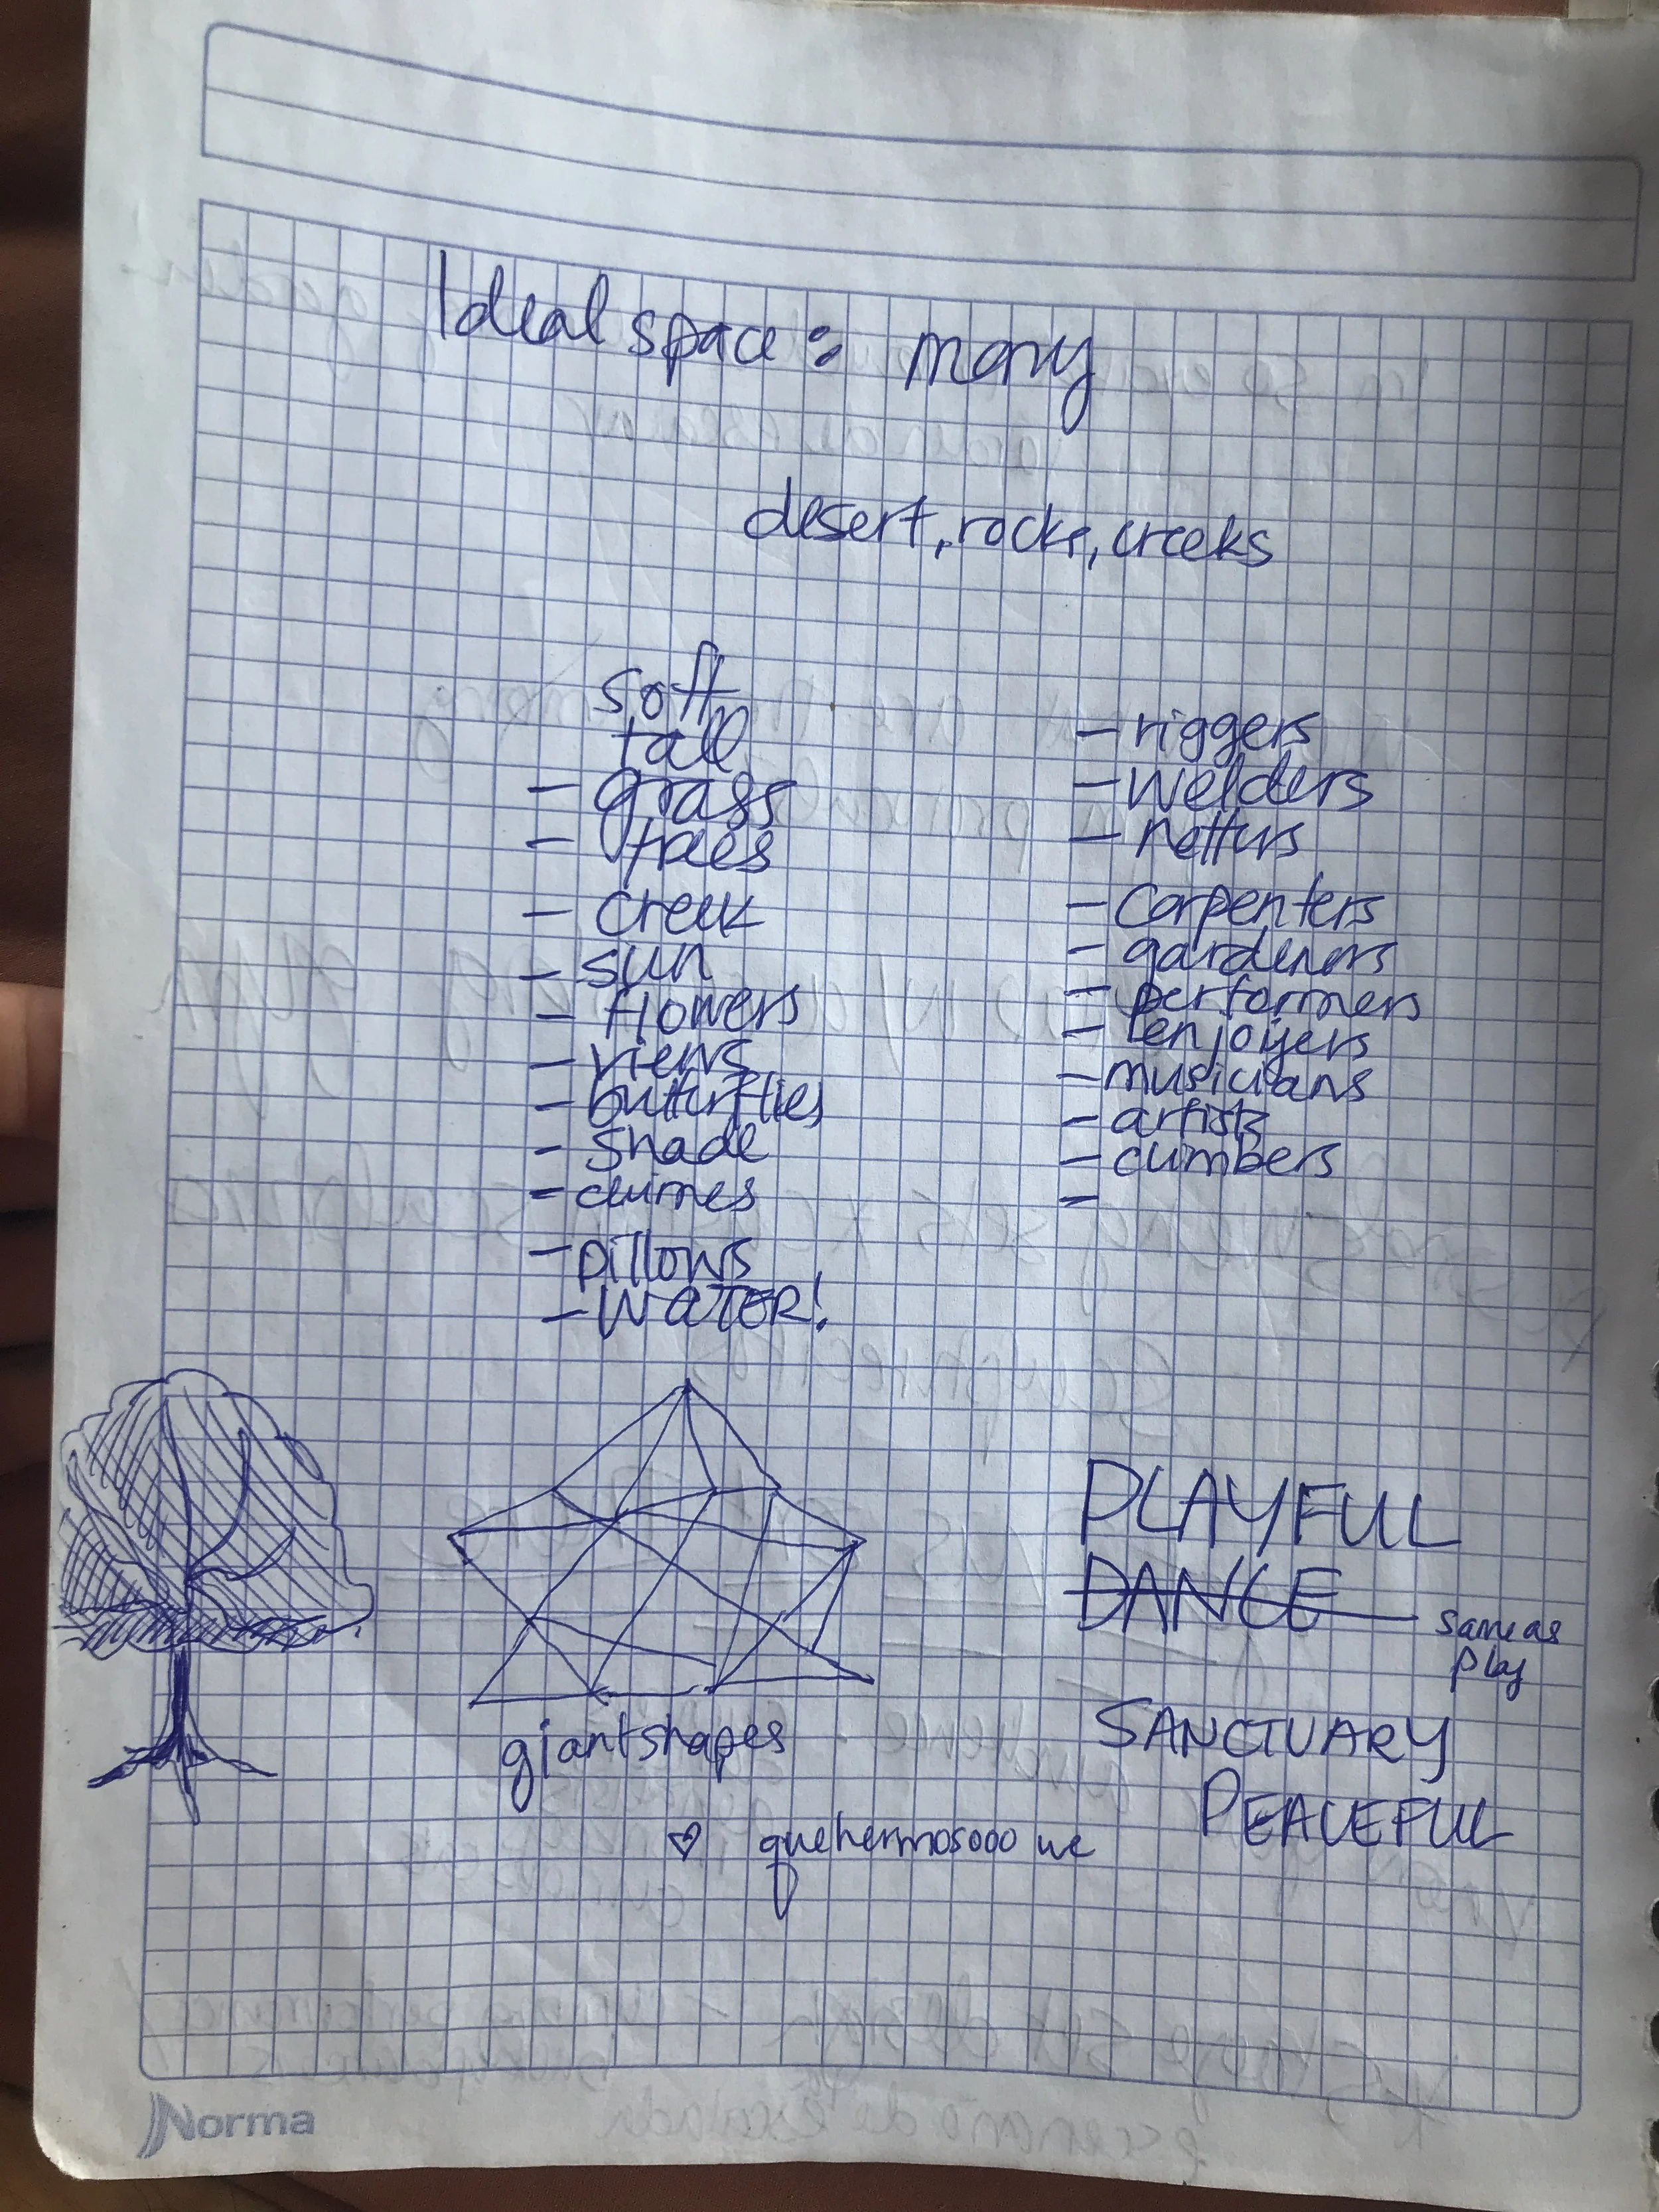 Ideal space: many
desert, rocks, creeks
soft
tall
- grass
- trees
- creek
- sun
- flowers
- views
- butterflies
- shade
- chimes
- pillows
- WATER!
- riggers
- welders
- netters
- carpenters
- gardeners
- performers
- enjoyers
- musicians
- artists
- climbers
-
giant shapes
♡ que hermosooo we
PLAYFUL
DANCE
same as
play
SANCTUARY
PEACEFUL
Norma